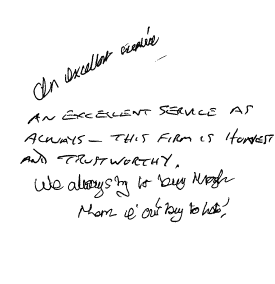 An excellent service
AN EXCELLENT SERVICE AS
ALWAYS — THIS FIRM IS HONEST
AND TRUSTWORTHY.
We always try to buy through
them